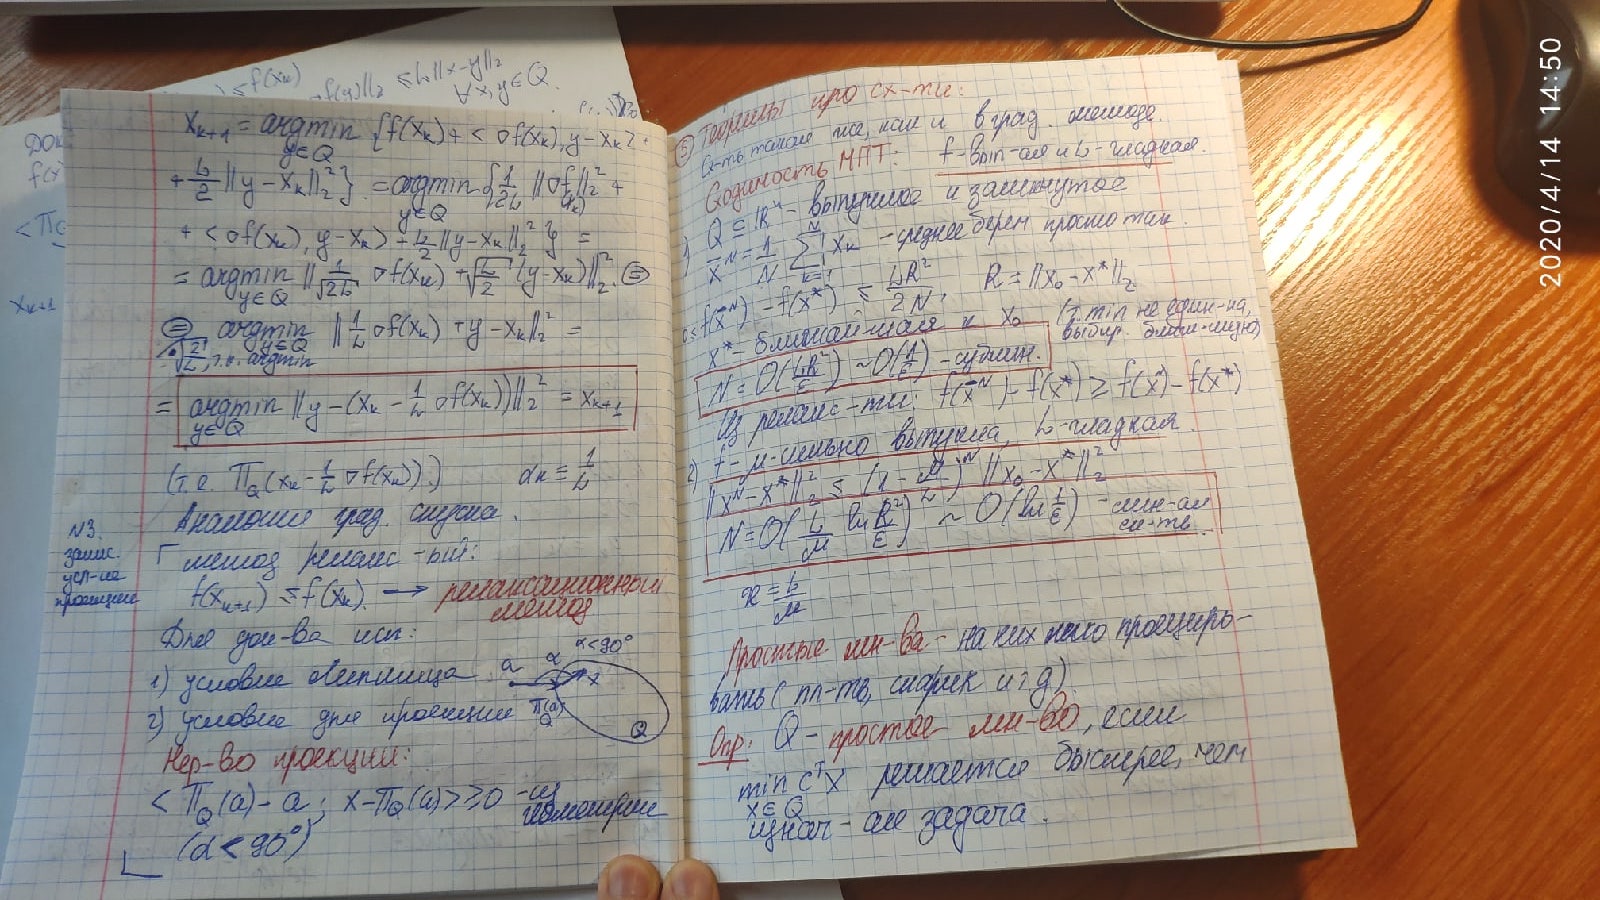 ≤ f(x_k)
f(y)||_2 ≤ L||x-y||_2
∀x, y ∈ Q.
x_{k+1} = argmin_{y∈Q} {f(x_k) + <∇f(x_k), y-x_k> +
+ L/2 ||y-x_k||_2^2} = argmin_{y∈Q} {1/2L ||∇f(x_k)||_2^2 +
+ <∇f(x_k), y-x_k> + L/2 ||y-x_k||_2^2} =
= argmin_{y∈Q} ||1/√2L ∇f(x_k) + √L/2 (y-x_k)||_2^2 ⊜
⊜ argmin_{y∈Q} ||1/L ∇f(x_k) + y-x_k||_2^2 =
·√2/L, т.к. argmin
= argmin_{y∈Q} ||y-(x_k - 1/L ∇f(x_k))||_2^2 = x_{k+1}
(т.е. П_Q(x_k - 1/L ∇f(x_k)).) α_k = 1/L
Аналогия град. спуска.
N3.
запис.
усл-ие
проекции
Г метод релакс-ый:
f(x_{k+1}) ≤ f(x_k). → релаксационный
метод
Для док-ва исп:
1) условие Липшица
2) условие для проекции
a α α<90° x
П_Q(a) Q
Нер-во проекции:
<П_Q(a)-a; x-П_Q(a)> ≥ 0 - из
геометрии
(α<90°)
⑤ Теоремы про сх-ти:
Сх-ть такая же, как и в град. методе.
Сходимость МПГ: f-вып-ая и L-гладкая.
1) Q ⊆ R^n - выпуклое и замкнутое
x̄^N = 1/N ∑_{k=1}^N x_k - среднее берем просто так.
0 ≤ f(x̄^N) - f(x*) ≤ LR^2/2N, R = ||x_0-x*||_2
x* - ближайшая к x_0 (т. min не един-на,
выбир. ближ-шую)
N = O(LR^2/ε) ~ O(1/ε) - сублин.
Из релакс-ти: f(x̄^N) - f(x*) ≥ f(x^N) - f(x*)
2) f - μ-сильно выпукла, L-гладкая.
||x^N-x*||_2^2 ≤ (1 - μ/L)^N ||x_0-x*||_2^2
N = O(L/μ ln R^2/ε) ~ O(ln 1/ε) - лин-ая
сх-ть.
æ = L/μ
Простые мн-ва - на них легко проециро-
вать (пл-ть, шарик и т.д)
Опр: Q - простое мн-во, если
min_{x∈Q} c^T x решается быстрее, чем
изнач-ая задача.
2020/4/14 14:50